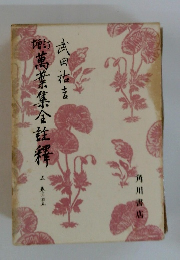 武田祐吉
増訂
萬葉集全註釋
角川書店